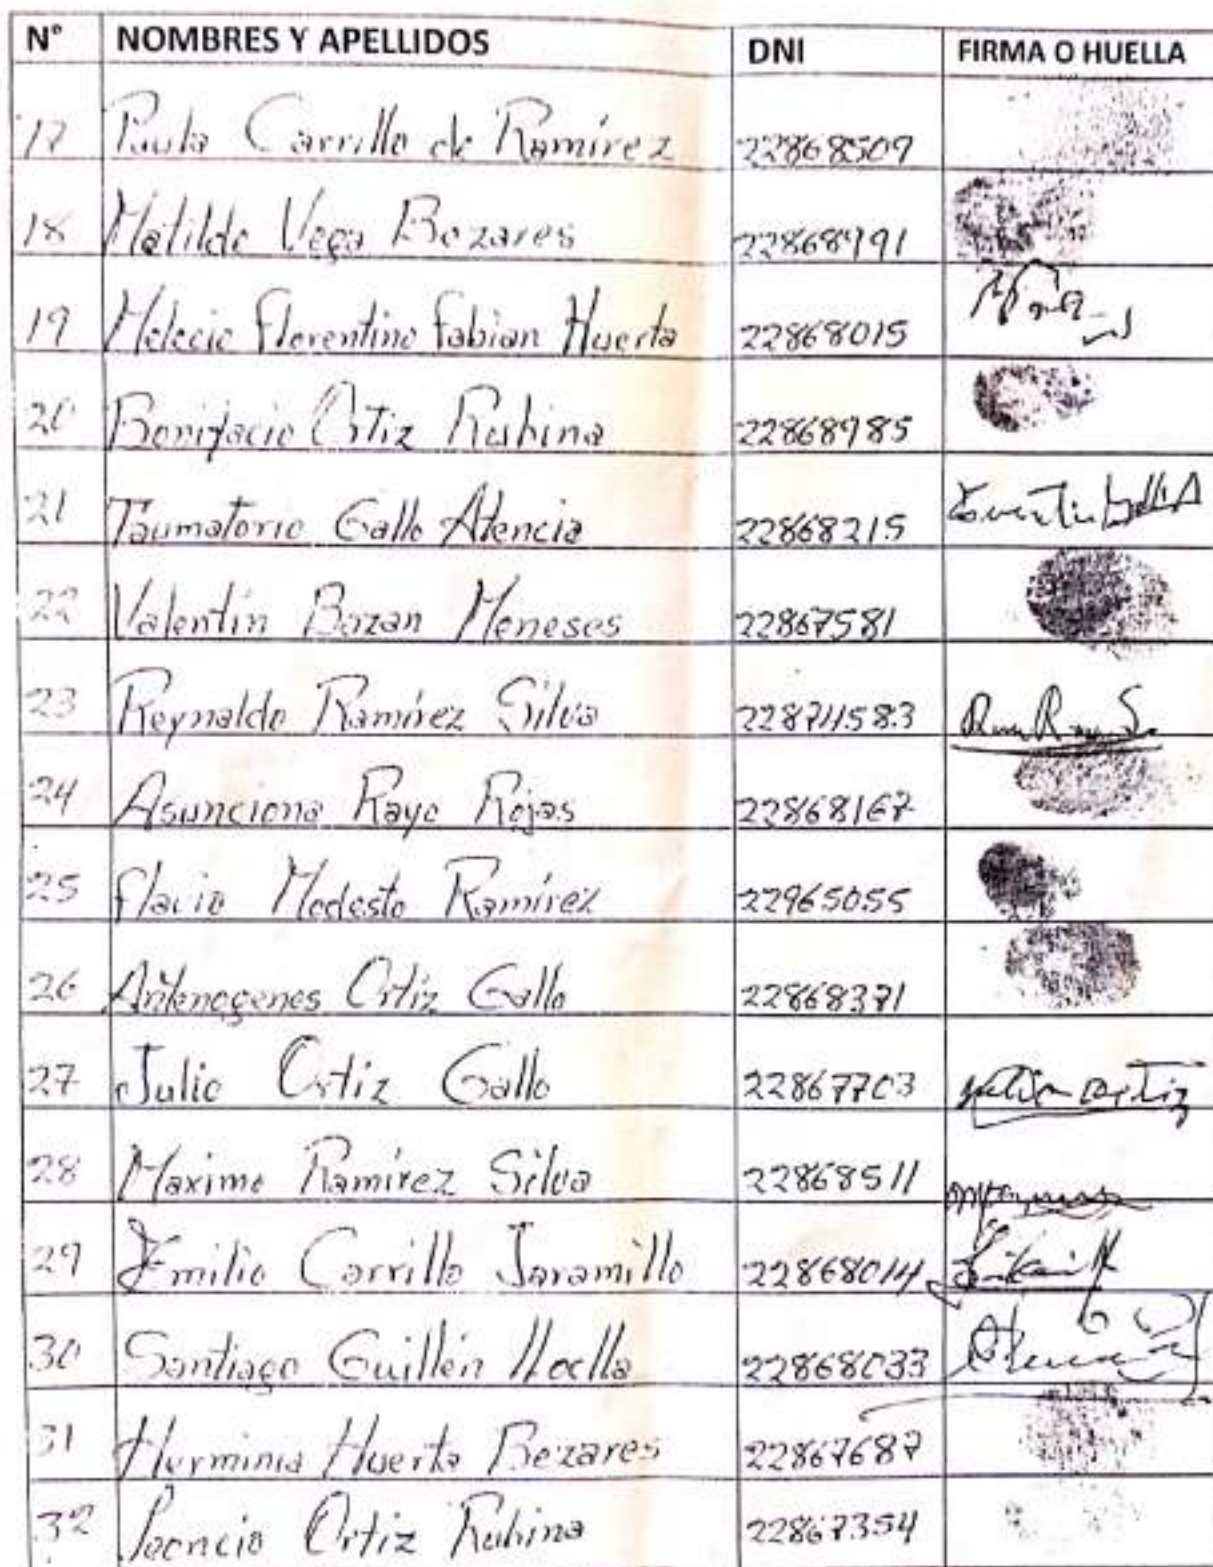 N° NOMBRES Y APELLIDOS DNI FIRMA O HUELLA
17 Paula Carrillo de Ramírez 22868509
18 Matilde Vega Bezares
19 Melecio Florentino Fabian Huerta 22868015
20 Bonifacio Ortiz Rubina 22868985
21 Taumatorio Gallo Atencia 22868215
22 Valentín Bazan Meneses 22867581
23 Reynaldo Ramírez Silva
24 Asunciona Rayo Rojas 22868167
25 Flavio Modesto Ramírez 22965055
26 Ortiz Gallo 22868371
27 Julio Ortiz Gallo 22867703
28 Maximo Ramírez Silva 22868511
29 Emilio Carrillo Jaramillo 22868014
30 Santiago Guillén 22868033
31 Herminia Huerta Bezares 22867687
32 Leoncio Ortiz Rubina 22867354